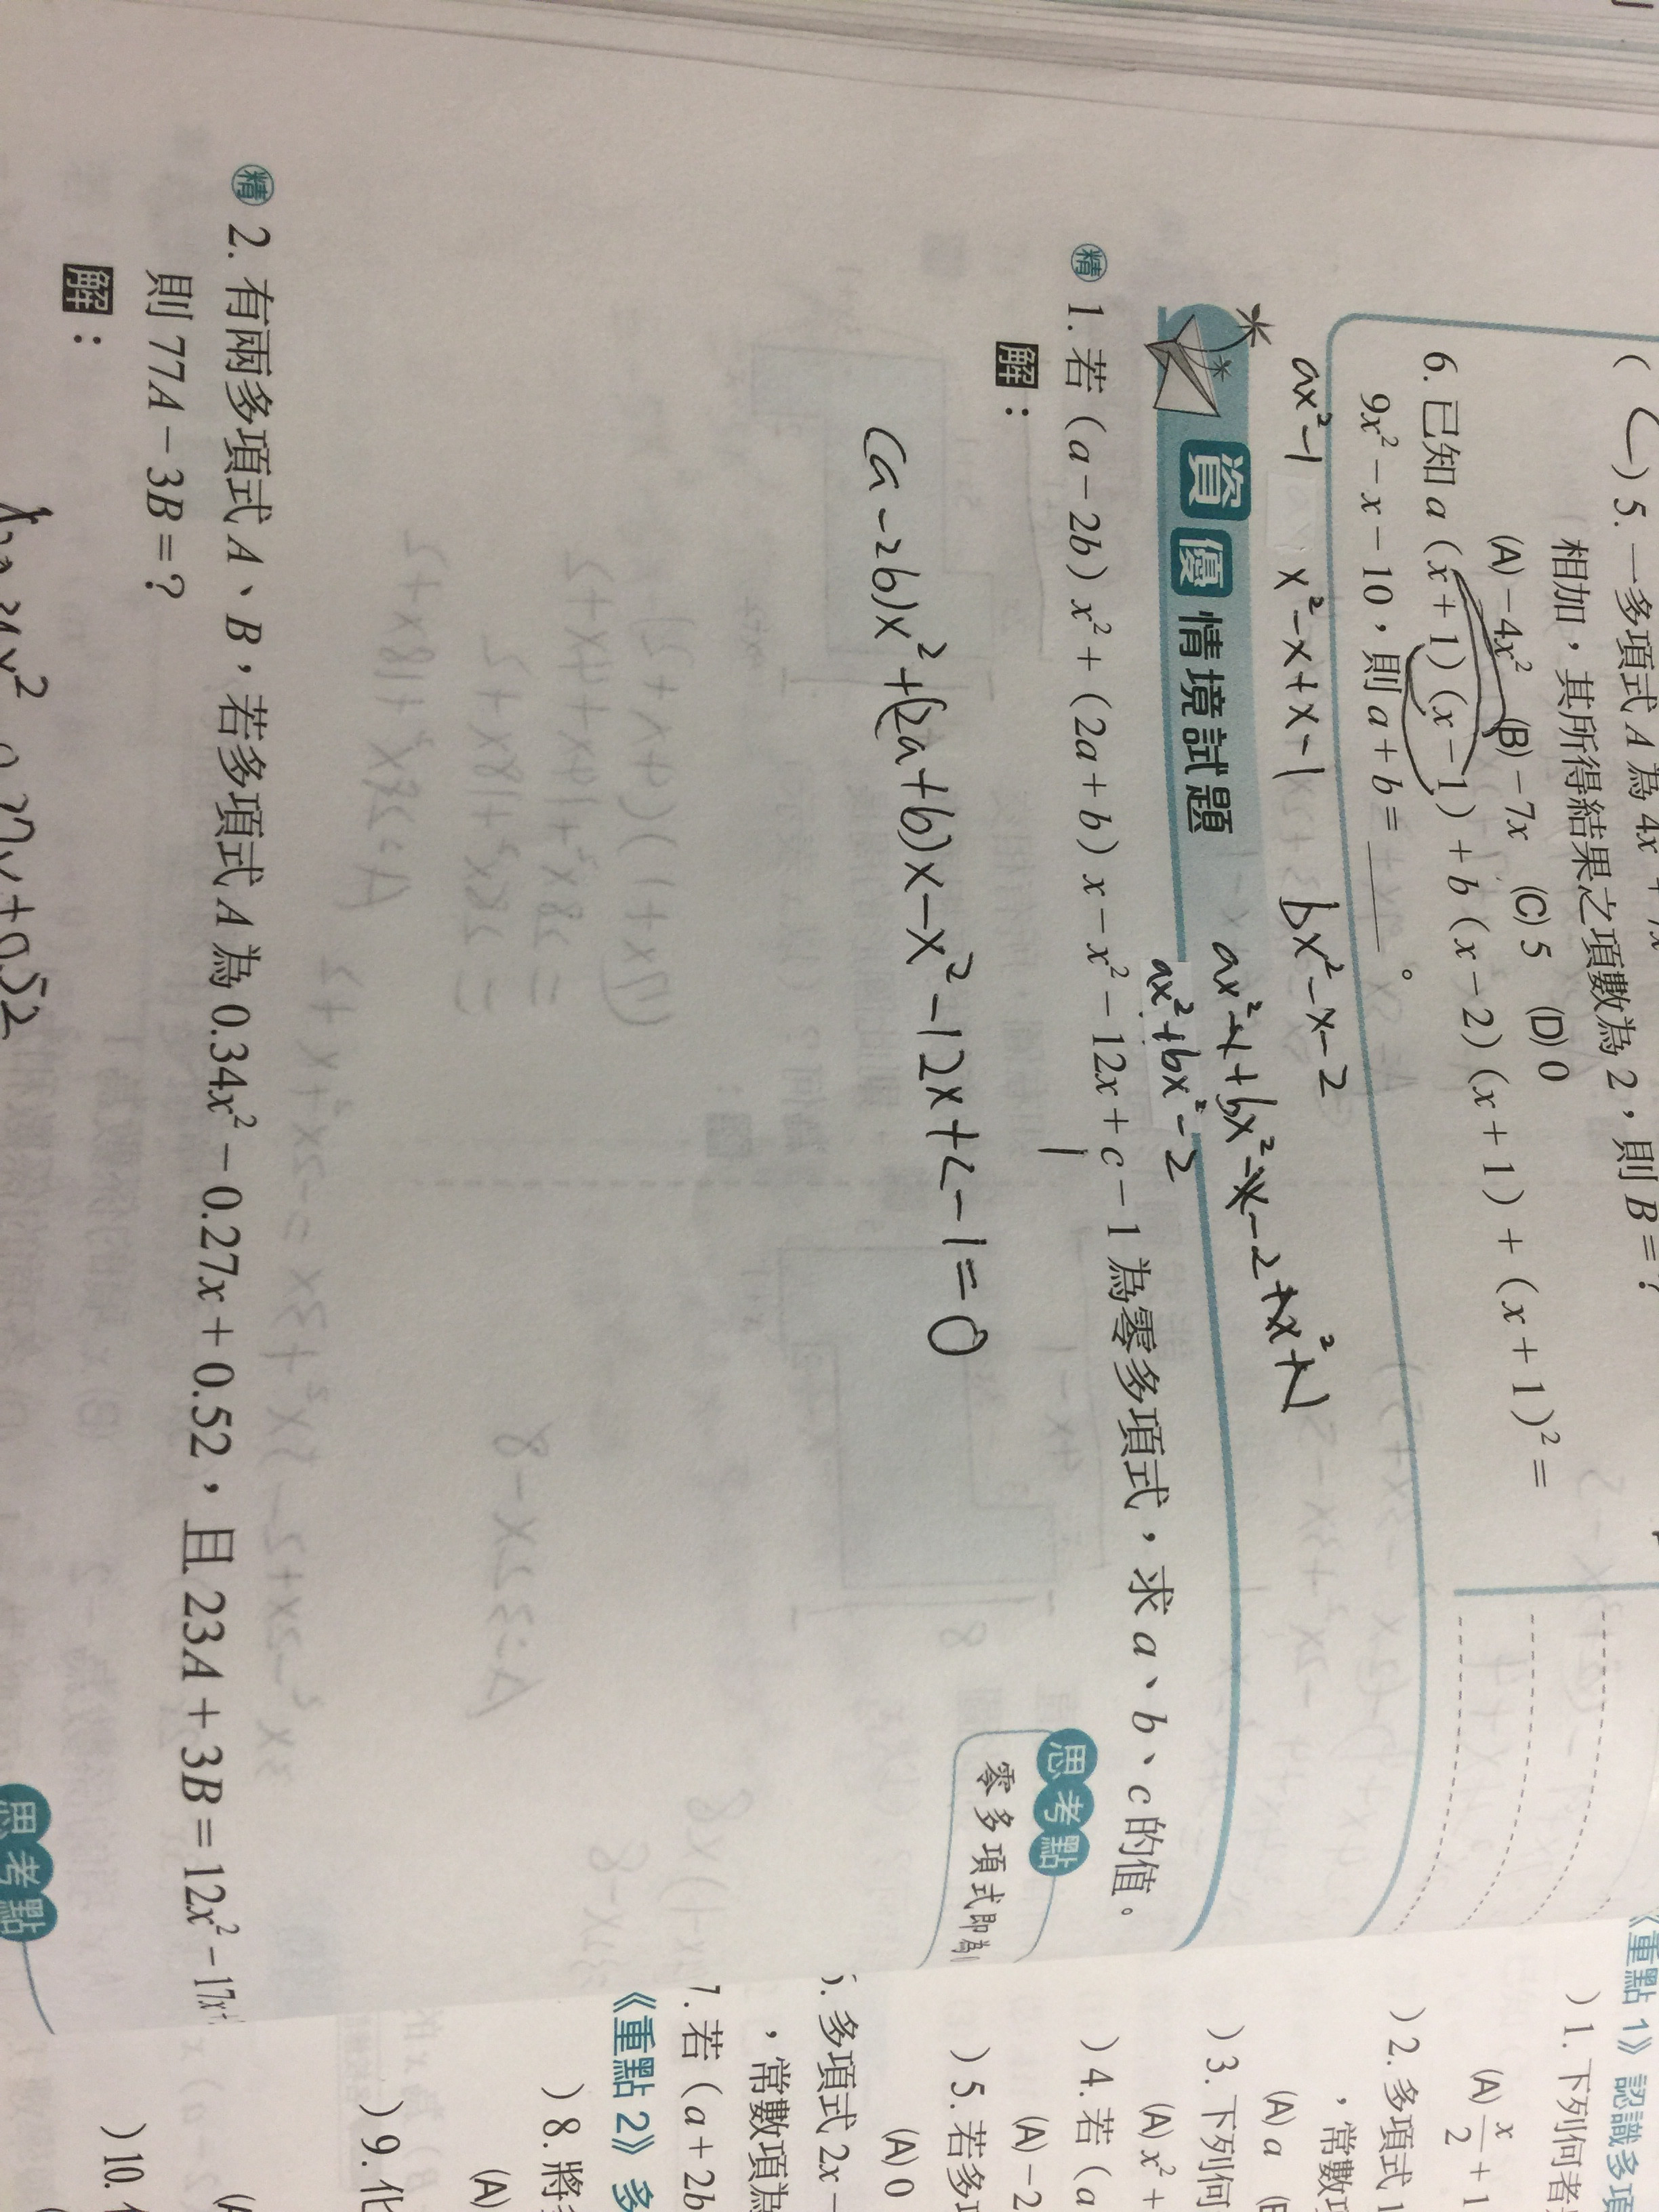 5. 一多項式 A 為 4x
相加，其所得結果之項數為 2，則 B = ?
(A) -4x² (B) -7x (C) 5 (D) 0
6. 已知 a (x+1) (x-1) + b (x-2) (x+1) + (x+1)² =
9x² - x - 10，則 a + b = ____。
ax²-1 x²-x+x-1 bx²-x-2
ax²+bx²-2
資優情境試題
精 1. 若 (a-2b) x² + (2a+b) x - x² - 12x + c - 1 為零多項式，求 a、b、c 的值。
解：
(a-2b)x²+(2a+b)x-x²-12x+c-1=0
思考點
零多項式即為
精 2. 有兩多項式 A、B，若多項式 A 為 0.34x² - 0.27x + 0.52，且 23A + 3B = 12x² - 17x+
則 77A - 3B = ?
解：
思考點
《重點 1》認識多項
) 1. 下列何者
(A) x/2 + 1
) 2. 多項式
，常數項
(A) a
) 3. 下列何
(A) x² +
) 4. 若 (a
(A) -2
) 5. 若多項
(A) 0
多項式 2x -
，常數項為
7. 若 (a + 2b
《重點 2》多
) 8. 將
(A)
) 9. 化
) 10.